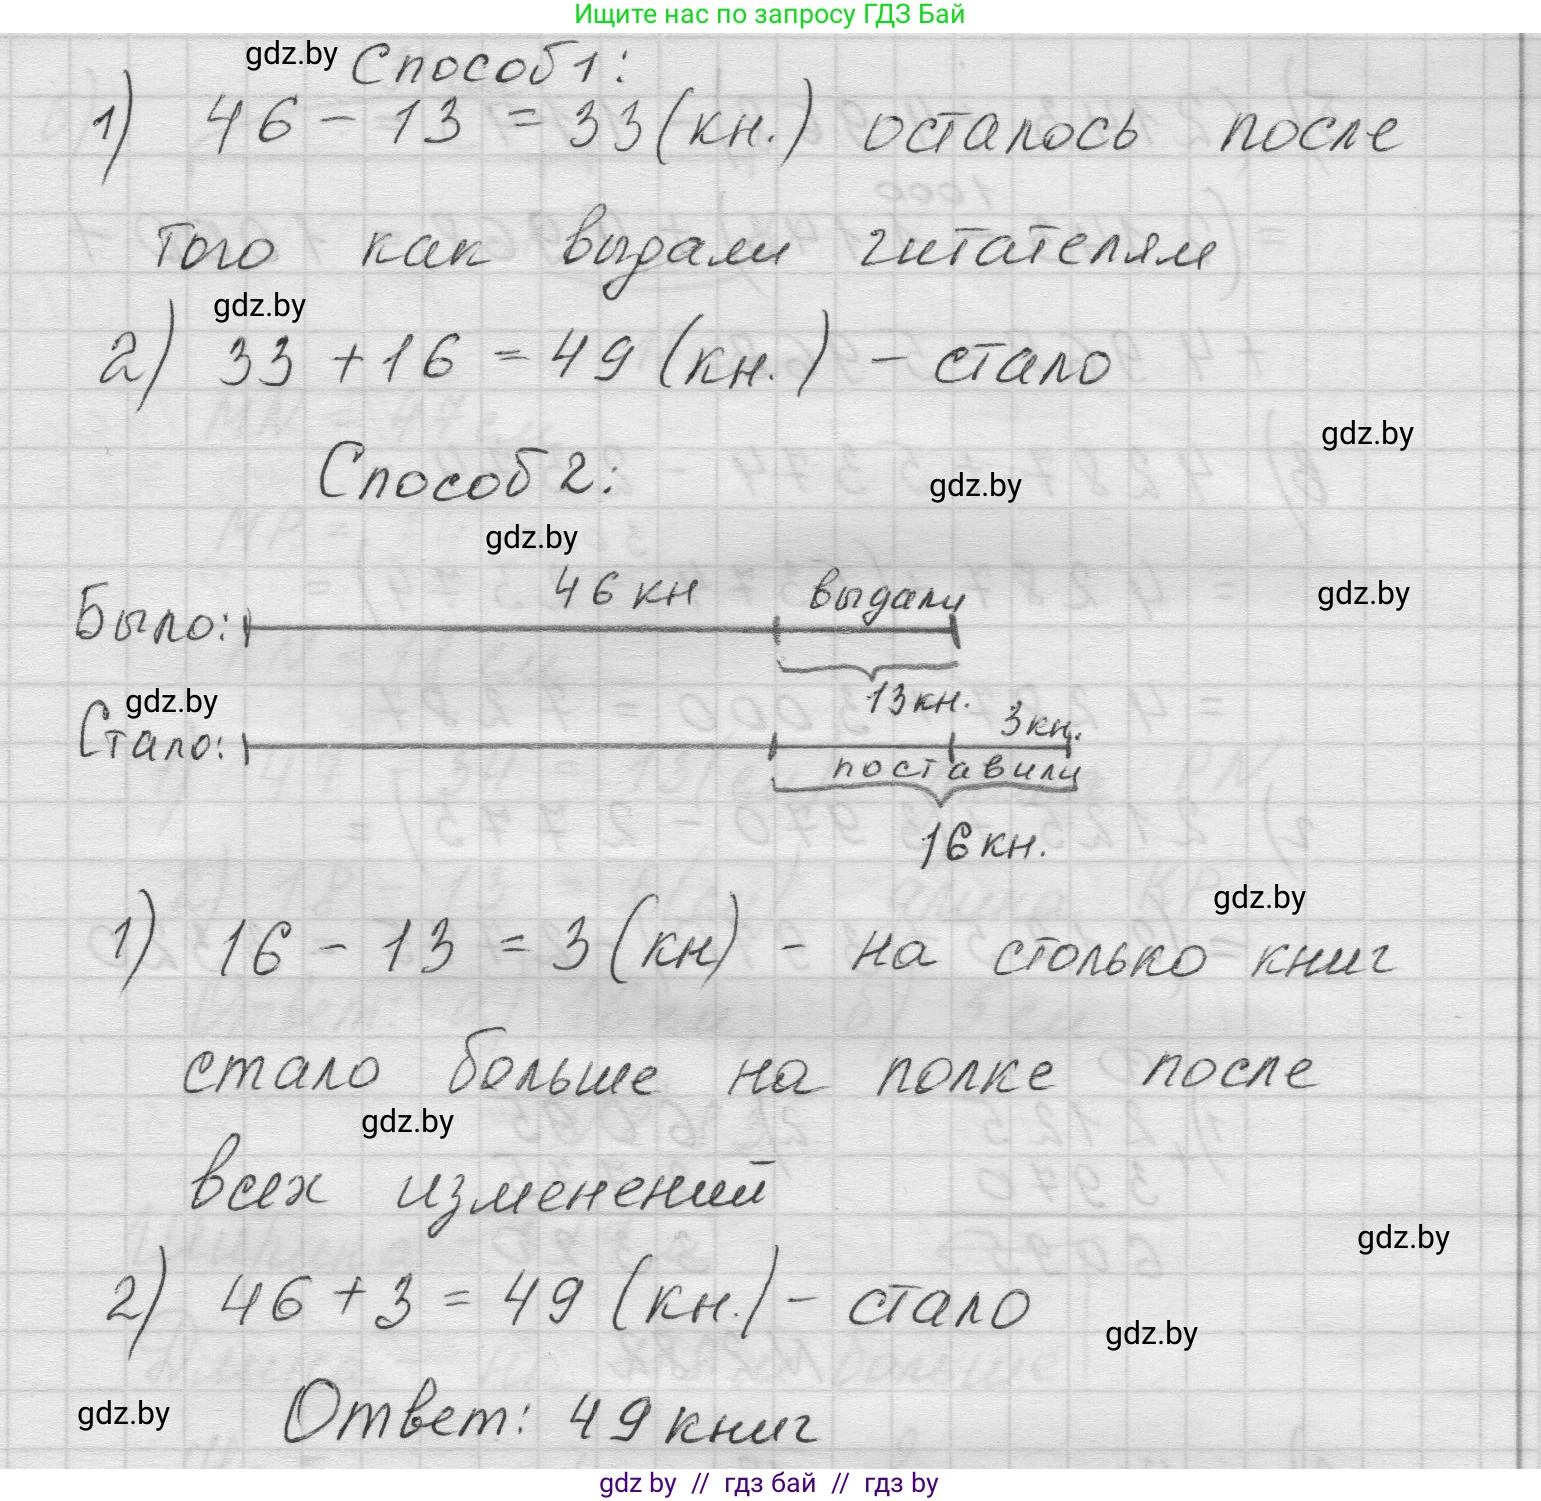 Ищите нас по запросу ГДЗ Бай
gdz.by
Способ 1:
1) 46 - 13 = 33 (кн.) осталось после
того как выдали читателям
gdz.by
2) 33 + 16 = 49 (кн.) - стало
gdz.by
Способ 2:
gdz.by
gdz.by
46 кн выдали
gdz.by
Было:
13 кн.
gdz.by
3 кн.
Стало:
поставили
16 кн.
gdz.by
1) 16 - 13 = 3 (кн) - на столько книг
стало больше на полке после
gdz.by
всех изменений
gdz.by
2) 46 + 3 = 49 (кн.) - стало
gdz.by
gdz.by
Ответ: 49 книг
gdz by // гдз бай // гдз by